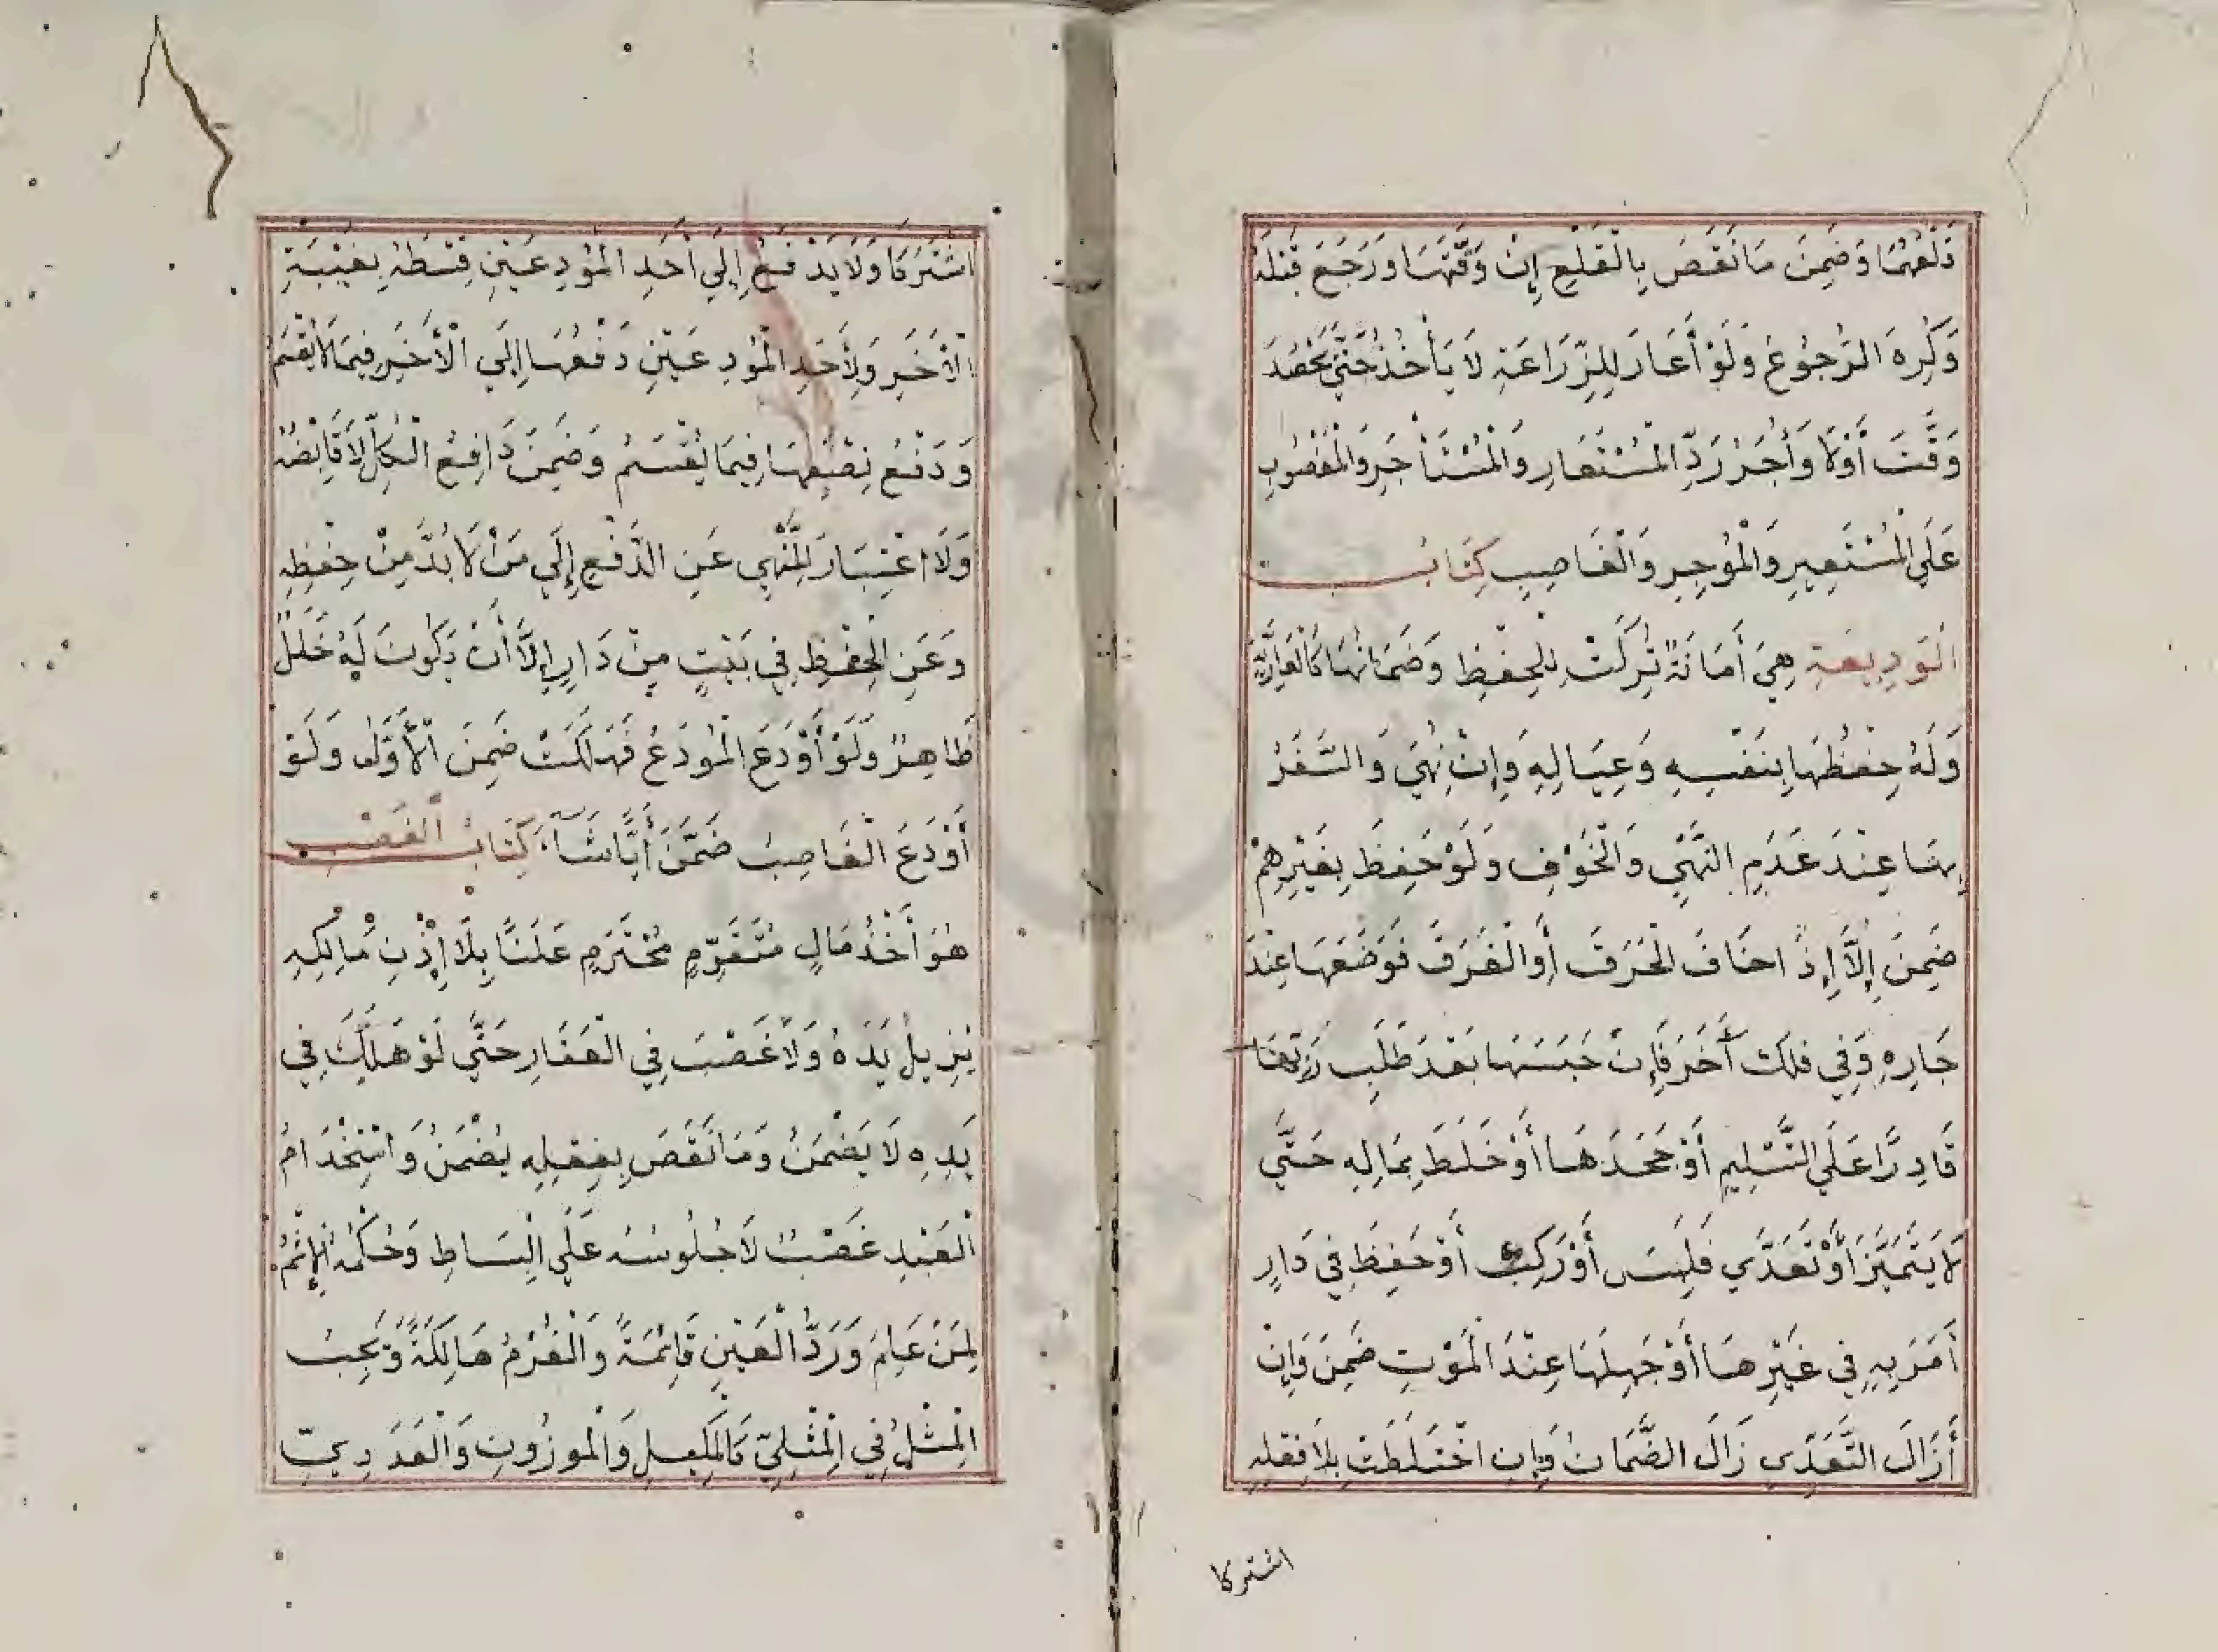 دَلْعُهُمَا وَضَمِنَ مَا نَقَصَ بِالْقَلْعِ إِنْ وَقَّتَهَا وَرَجَعَ قَبْلَهُ
وَكُرِهَ الرُّجُوعُ وَلَوْ أَعَارَ لِلزِّرَاعَةِ لَا يَأْخُذُ حَتَّى يَحْصُدَ
وَقَّتَ أَوْ لَا وَأُجْرُ رَدِّ الْمُسْتَعَارِ وَالْمُسْتَأْجَرِ وَالْمَغْصُوبِ
عَلَى الْمُسْتَعِيرِ وَالْمُوجِرِ وَالْغَاصِبِ كِتَابُ
الْوَدِيعَةِ هِيَ أَمَانَةٌ تُرِكَتْ لِلْحِفْظِ وَضَمَانُهَا كَالْعَارِيَّةِ
وَلَهُ حِفْظُهَا بِنَفْسِهِ وَعِيَالِهِ وَإِنْ نُهِيَ وَالسَّفَرُ
بِهَا عِنْدَ عَدَمِ النَّهْيِ وَالْخَوْفِ وَلَوْ حَفِظَ بِغَيْرِهِمْ
ضَمِنَ إِلَّا إِذَا خَافَ الْحَرَقَ أَوِ الْغَرَقَ فَوَضَعَهَا عِنْدَ
جَارِهِ وَفِي فلك آخَرَ فَإِنْ حَبَسَهَا بَعْدَ طَلَبِ رَبِّهَا
قَادِرًا عَلَى التَّسْلِيمِ أَوْ جَحَدَهَا أَوْ خَلَطَ بِمَالِهِ حَتَّى
لَا يَتَمَيَّزَ أَوْ تَعَدَّى فَلَبِسَ أَوْ رَكِبَ أَوْ حَفِظَ فِي دَارٍ
أَمَرَ بِهِ فِي غَيْرِهَا أَوْ جَهِلَهَا عِنْدَ الْمَوْتِ ضَمِنَ وَإِنْ
أَزَالَ التَّعَدِّي زَالَ الضَّمَانُ وَإِنِ اخْتَلَطَتْ بِلَا فِعْلِهِ
اشتركا
اشْتَرَكَا وَلَا يَدْفَعُ إِلَى أَحَدِ الْمُودِعَيْنِ قِسْطَهُ بِغَيْبَةِ
الْآخَرِ وَلِأَحَدِ الْمُودِعَيْنِ دَفْعُهَا إِلَى الْآخَرِ فِيمَا لَا يُقْسَمُ
وَدَفْعُ نِصْفِهَا فِيمَا يُقْسَمُ وَضَمِنَ دَافِعُ الْكُلِّ لَا قَابِضُهُ
وَلَا اعْتِبَارَ لِلنَّهْيِ عَنِ الدَّفْعِ إِلَى مَنْ لَا بُدَّ مِنْ حِفْظِهِ
وَعَنِ الْحِفْظِ فِي بَيْتٍ مِنْ دَارٍ إِلَّا أَنْ يَكُونَ لَهُ خَلَلٌ
ظَاهِرٌ وَلَوْ أَوْدَعَ الْمُودَعُ فَهَلَكَتْ ضَمِنَ الْأَوَّلُ وَلَوْ
أَوْدَعَ الْغَاصِبُ ضَمَّنَ أَيًّا شَاءَ كِتَابُ الْغَصْبِ
هُوَ أَخْذُ مَالٍ مُتَقَوِّمٍ مُحْتَرَمٍ عَلَنًا بِلَا إِذْنِ مَالِكِهِ
يُزِيلُ يَدَهُ وَلَا غَصْبَ فِي الْعَقَارِ حَتَّى لَوْ هَلَكَ فِي
يَدِهِ لَا يَضْمَنُ وَمَا نَقَصَ بِفِعْلِهِ يُضْمَنُ وَاسْتِخْدَامُ
الْعَبْدِ غَصْبٌ لَا جُلُوسُهُ عَلَى الْبِسَاطِ وَحُكْمُهُ الْإِثْمُ
لِمَنْ عَلِمَ وَرَدُّ الْعَيْنِ قَائِمَةً وَالْغُرْمُ هَالِكَةً وَيَجِبُ
الْمِثْلُ فِي الْمِثْلِيِّ كَالْمَكِيلِ وَالْمَوْزُونِ وَالْعَدَدِيِّ